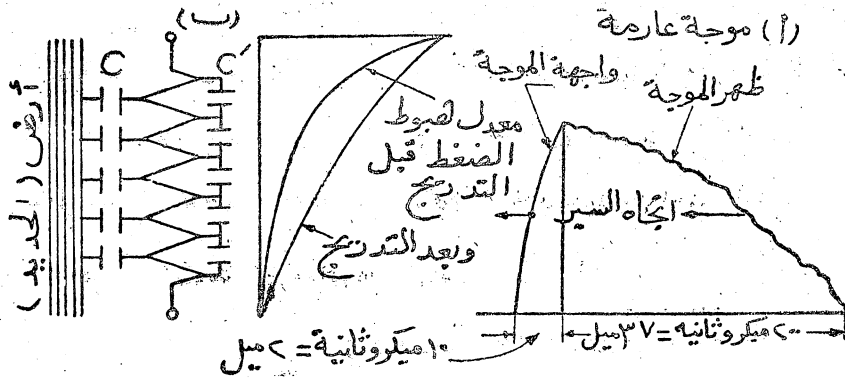 (أ) موجة عارمة
واجهة الموجة
ظهر الموجة
اتجاه السير
٢٠٠ ميكروثانيه = ٣٧ ميل
١٠ ميكروثانية = ٢ ميل
(ب)
معدل هبوط
الضغط قبل
التدريج
وبعد التدريج
C
C′
أرض (الحديد)